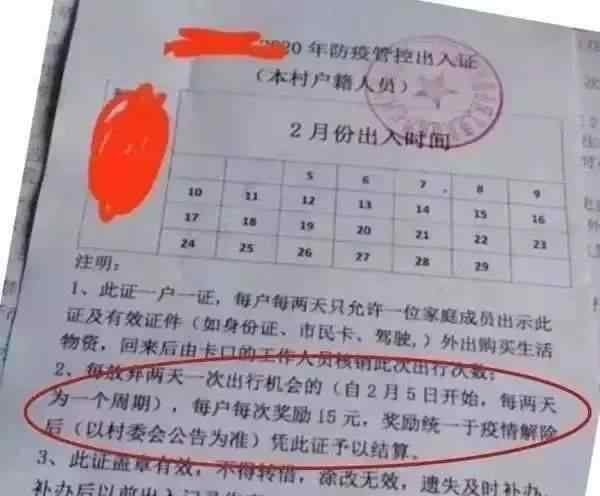 2020年防疫管控出入证
（本村户籍人员）
2月份出入时间
5 6 7 8 9
10 11 12 13 14 15 16
17 18 19 20 21 22 23
24 25 26 27 28 29
注明：
1、此证一户一证，每户每两天只允许一位家庭成员出示此
证及有效证件（如身份证、市民卡、驾驶,）外出购买生活
物资，回来后由卡口的工作人员核销此次出行次数；
2、每放弃两天一次出行机会的（自2月5日开始，每两天
为一个周期），每户每次奖励15元，奖励统一于疫情解除
后（以村委会公告为准）凭此证予以结算。
3、此证盖章有效，不得转借，涂改无效，遗失及时补办，
补办后以前出入记录